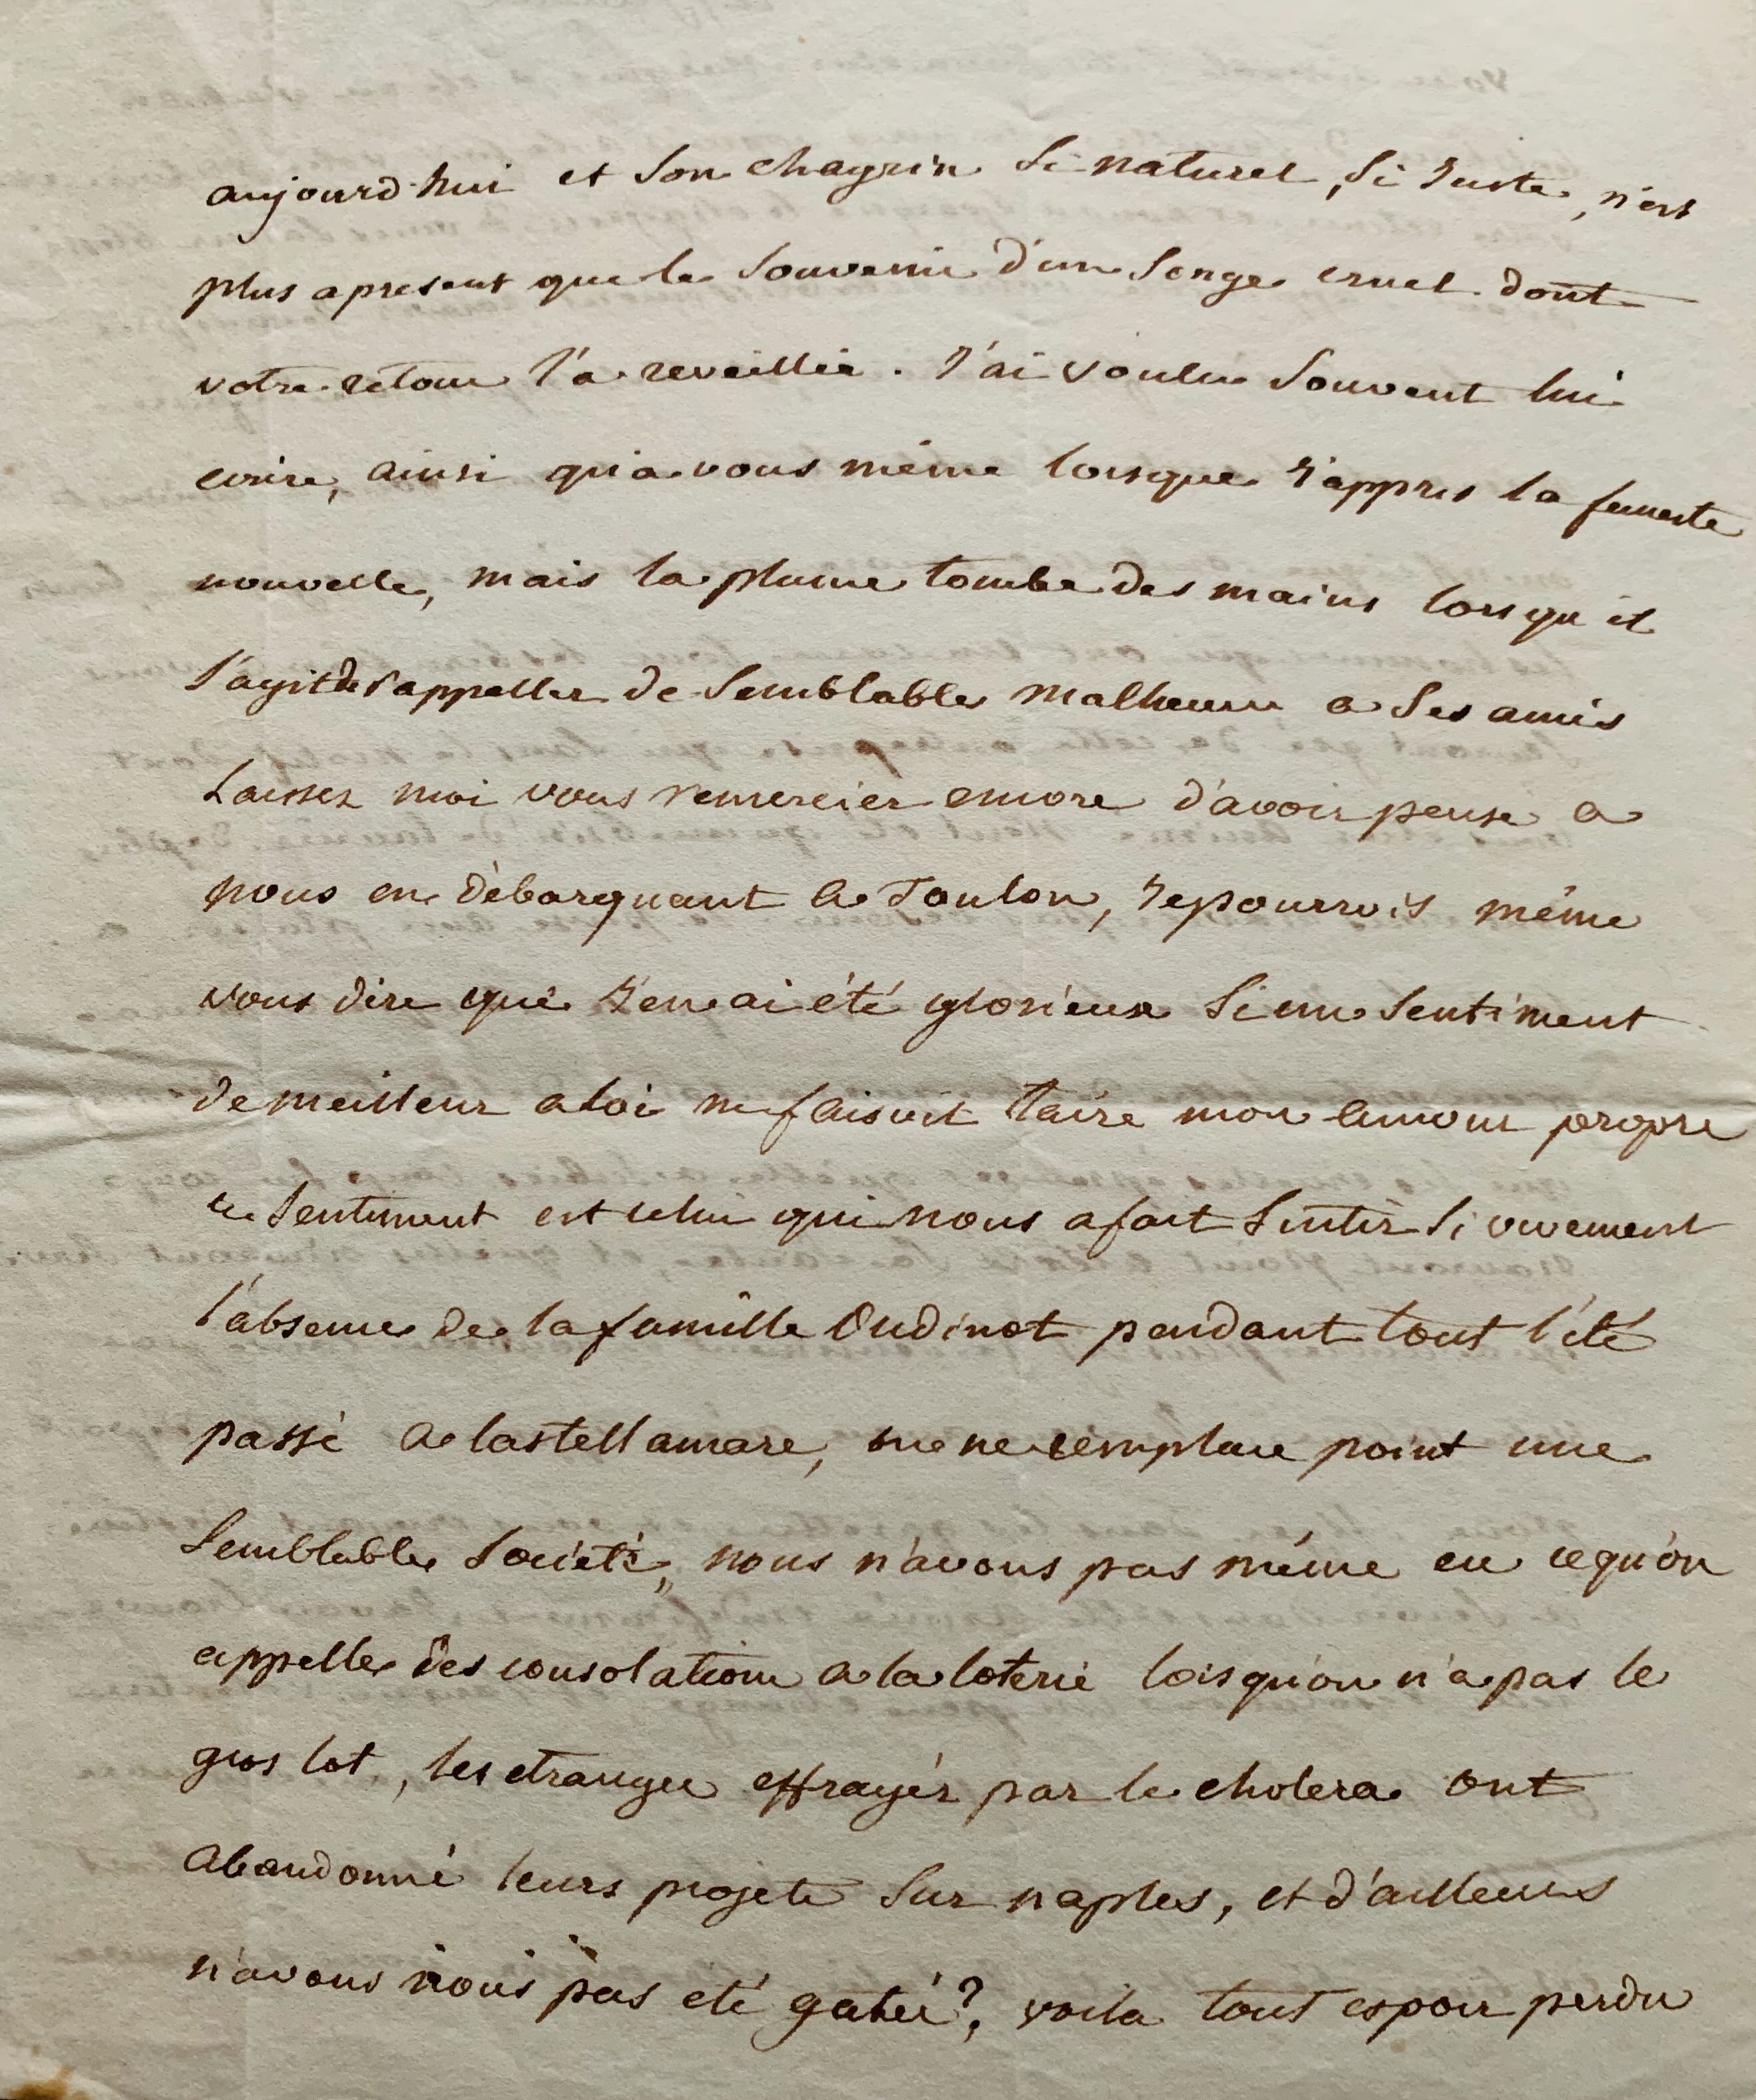 aujourd'hui et son chagrin si naturel, si juste, n'est
plus apresent que le souvenir d'un songe cruel dont
votre retour l'a reveillée. j'ai voulu souvent lui
ecrire, ainsi qu'a vous même lorsque j'appris la funeste
nouvelle, mais la plume tombe des mains lorsqu'il
s'agit de rappeller de semblable malheurs a ses amis
Laissez moi vous remercier encore d'avoir pensé a
nous en débarquant a Toulon, je pourrois même
vous dire que j'en ai été glorieux si un sentiment
de meilleur aloi ne faisoit taire mon amour propre
ce sentiment est celui qui nous a fait sentir si vivement
l'absence de la famille Oudinot pendant tout l'été
passé a Castellamare, on ne remplace point une
semblable societé, nous n'avons pas même eu ce qu'on
appelle des consolations a la loterie lorsqu'on n'a pas le
gros lot, les etrangers effrayés par le cholera ont
abandonné leurs projets sur naples, et d'ailleurs
n'avons nous pas eté gatés?, voila tout espoir perdu